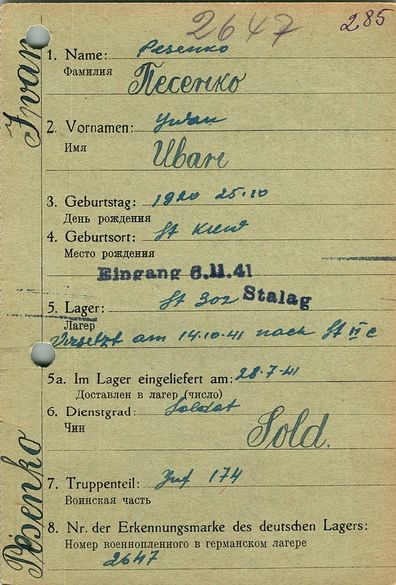 2647 285
Ivan
1. Name: Pesenko
Фамилия
Песенко
2. Vornamen: Iwan
Имя
Иван
3. Geburtstag: 1920 25.10
День рождения
4. Geburtsort: St Kiew
Место рождения
Eingang 6.11.41
5. Lager: St 302 Stalag
Лагерь
Versetzt am 14.10.41 nach St VI C
5a. Im Lager eingeliefert am: 28.7.41
Доставлен в лагерь (число)
6. Dienstgrad: Soldat
Чин
Sold.
7. Truppenteil: Inf 174
Воинская часть
8. Nr. der Erkennungsmarke des deutschen Lagers:
Номер военнопленного в германском лагере
2647
Pesenko